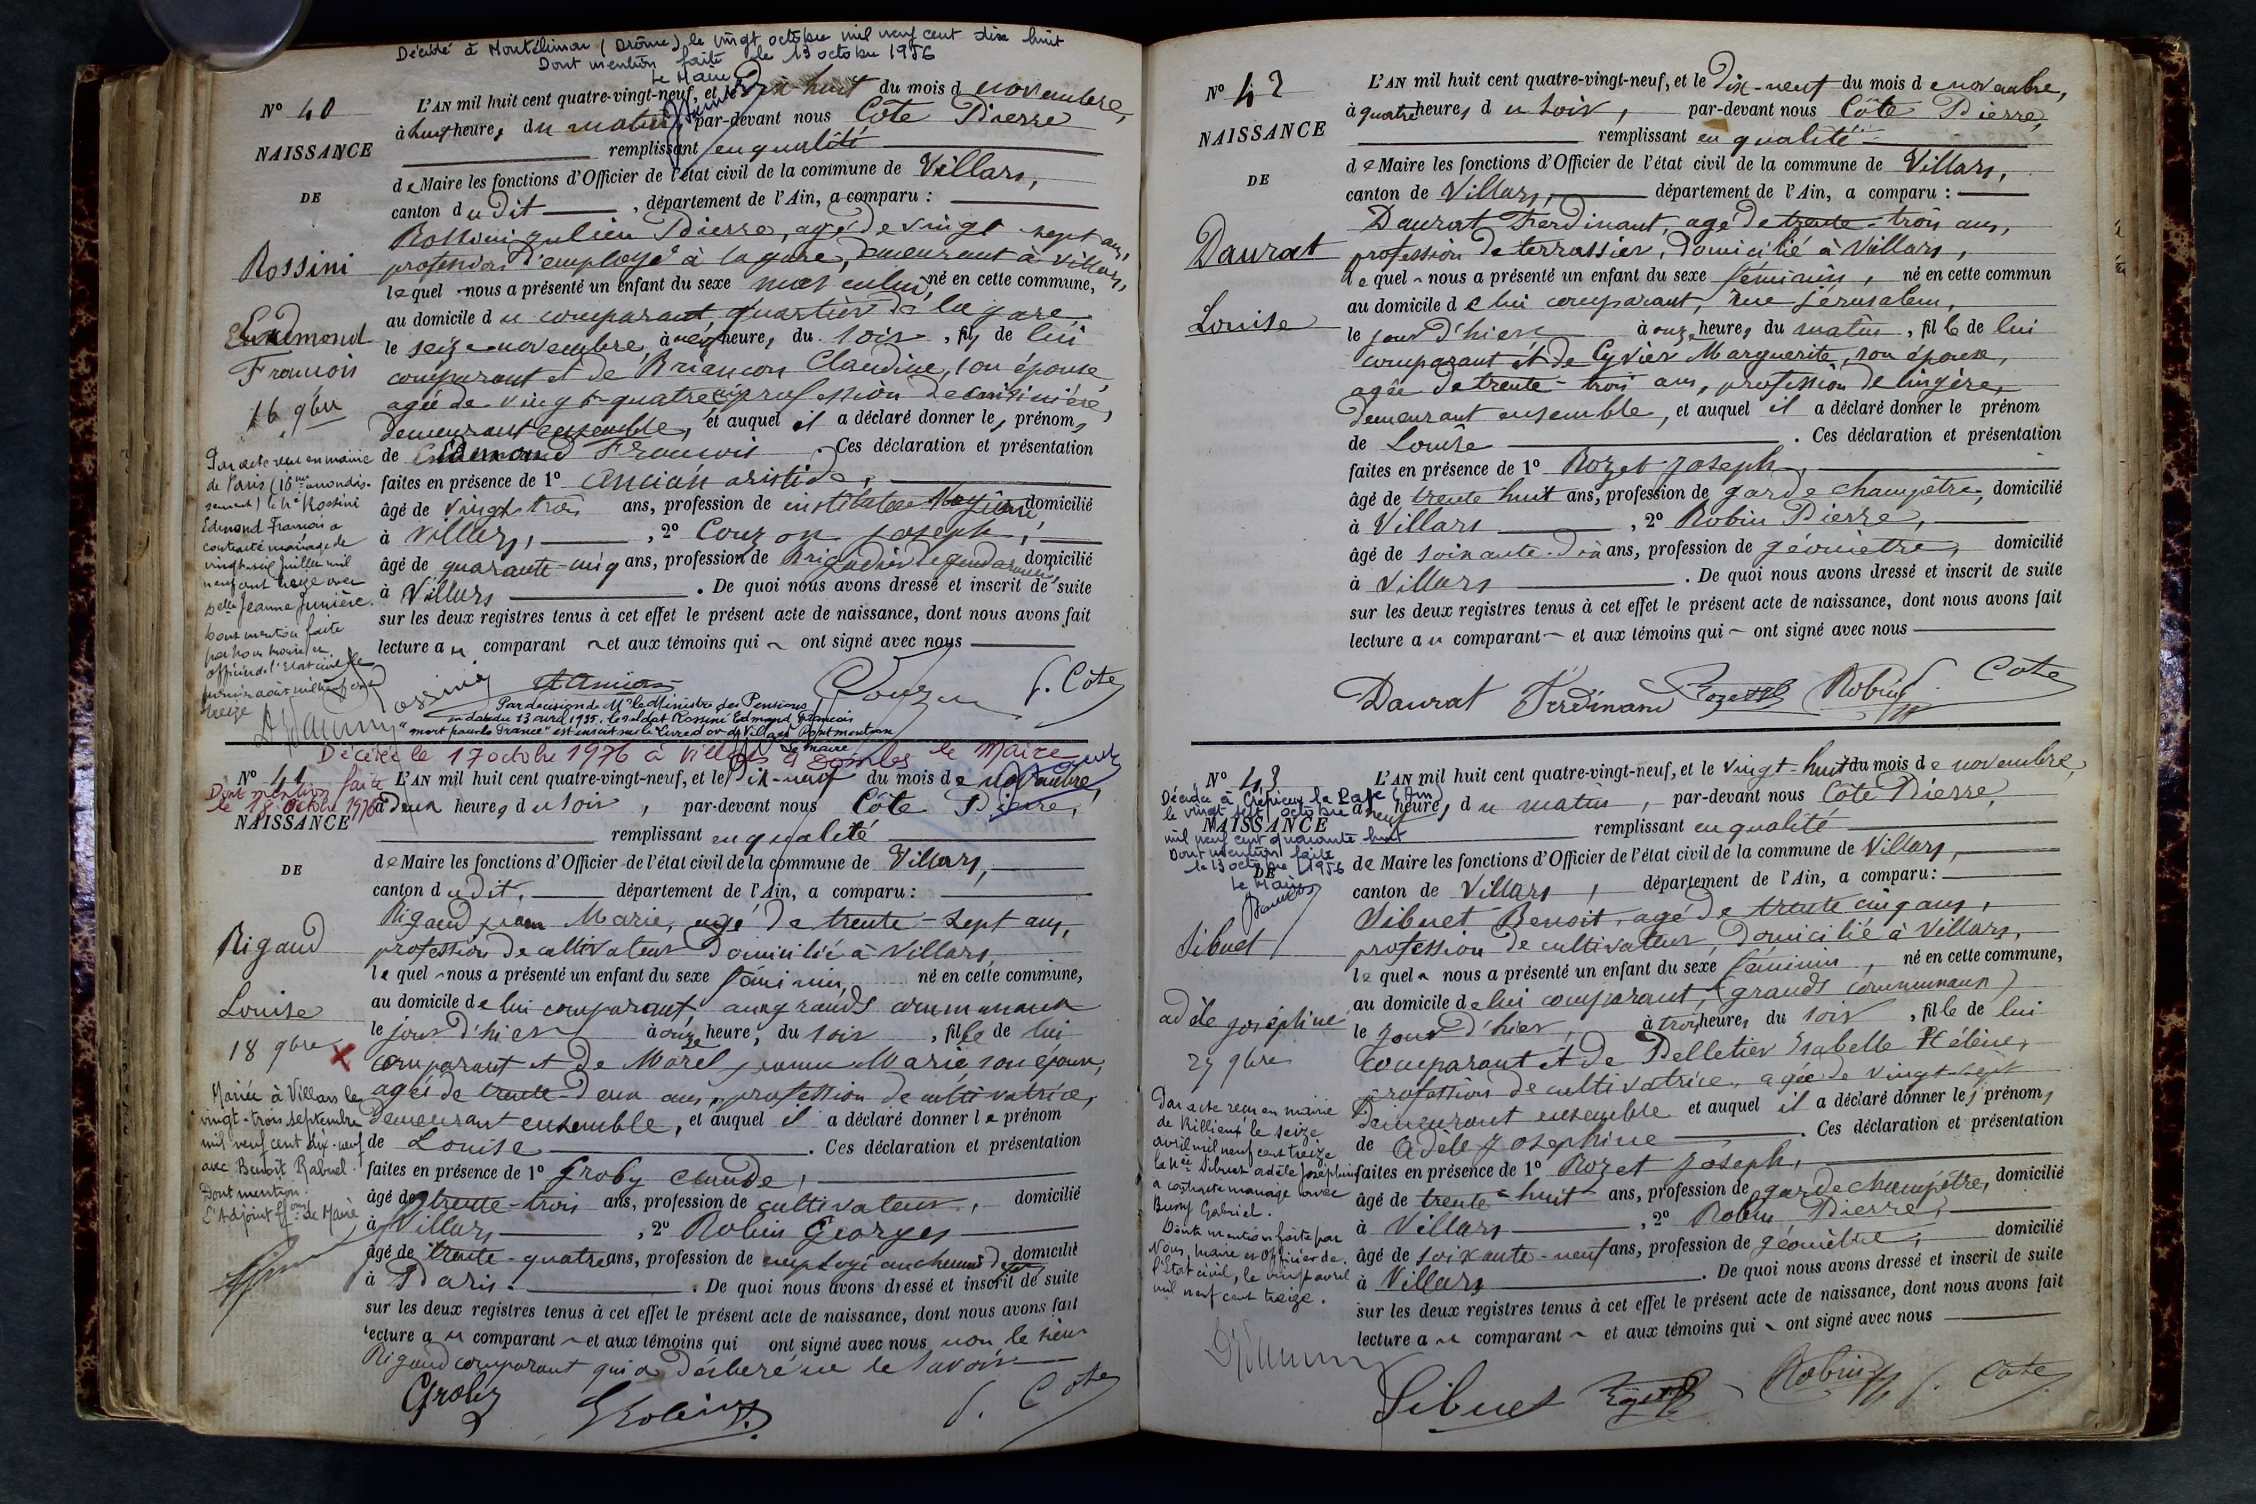 Décédé à Montélimar (Drôme) le vingt octobre mil neuf cent dix huit
Dont mention faite le 13 octobre 1956
Le Maire
N° 40
NAISSANCE
DE
Rossini
Edmond
François
16 9bre
L'AN mil huit cent quatre-vingt-neuf, et le Dix-huit du mois d e novembre,
à huit heures du matin, par-devant nous Côte Pierre
remplissant en qualité
de Maire les fonctions d'Officier de l'état civil de la commune de Villars,
canton du dit, département de l'Ain, a comparu :
Rossini Julien Pierre, agé de vingt sept ans,
profession d'employé à la gare, demeurant à Villars,
lequel nous a présenté un enfant du sexe masculin, né en cette commune,
au domicile du comparant quartier de la gare
le seize novembre, à neuf heures, du soir, fils de lui
comparant et de Briançon Claudine, son épouse,
agée de vingt-quatre ans, profession de cuisinière,
demeurant ensemble, et auquel il a déclaré donner les prénoms
de Edmond François. Ces déclaration et présentation
faites en présence de 1° Ancian aristide,
âgé de vingt trois ans, profession de instituteur, domicilié
à Villars, 2° Couzon Joseph,
âgé de quarante-cinq ans, profession de Brigadier de gendarmerie, domicilié
à Villars. De quoi nous avons dressé et inscrit de suite
sur les deux registres tenus à cet effet le présent acte de naissance, dont nous avons fait
lecture au comparant et aux témoins qui ont signé avec nous
Par acte reçu en mairie
de Paris (16me arrondis-
sement) le né Rossini
Edmond François a
contracté mariage le
vingt-six juillet mil
neuf cent treize avec
Delle Jeanne Junière.
Dont mention faite
par nous maire
officier de l'Etat civil le
premier août mil neuf cent
treize
Rossini A Ancian Couzon P. Côte
Par décision de Mr le Ministre des Pensions
en date du 13 avril 1935, le soldat Rossini Edmond François
"mort pour la France" est inscrit sur le Livre d'or de Villars Dont mention
Le maire
Décédée le 17 octobre 1976 à Villars les Dombes le Maire
Dont mention faite
le 18 octobre 1976
N° 41
NAISSANCE
DE
Rigaud
Louise
18 9bre
L'AN mil huit cent quatre-vingt-neuf, et le Dix-neuf du mois d e novembre,
à deux heures du soir, par-devant nous Côte Pierre,
remplissant en qualité
de Maire les fonctions d'Officier de l'état civil de la commune de Villars,
canton du dit, département de l'Ain, a comparu :
Rigaud Jean Marie, agé de trente-sept ans,
profession de cultivateur Domicilié à Villars,
lequel nous a présenté un enfant du sexe féminin, né en cette commune,
au domicile de lui comparant, aux grands communaux
le jour d'hier à onze heure, du soir, fille de lui
comparant et de Morel Jeanne Marie son épouse,
agée de trente-deux ans, profession de cultivatrice,
demeurant ensemble, et auquel il a déclaré donner le prénom
de Louise. Ces déclaration et présentation
faites en présence de 1° Groby Claude,
âgé de trente-trois ans, profession de cultivateur, domicilié
à Villars, 2° Robin Georges
âgé de trente-quatre ans, profession de employé au chemin de fer domicilié
à Paris. De quoi nous avons dressé et inscrit de suite
sur les deux registres tenus à cet effet le présent acte de naissance, dont nous avons fait
lecture au comparant et aux témoins qui ont signé avec nous non le sieur
Rigaud comparant qui a déclaré ne le savoir
Mariée à Villars le
vingt-trois septembre
mil neuf cent dix-neuf
avec Benoît Rabuel
Dont mention
L'Adjoint ffons de Maire
Groby G Robin P. Côte
N° 42
NAISSANCE
DE
Daurat
Louise
L'AN mil huit cent quatre-vingt-neuf, et le Dix-neuf du mois d e novembre,
à quatre heures du soir, par-devant nous Côte Pierre,
remplissant en qualité
de Maire les fonctions d'Officier de l'état civil de la commune de Villars,
canton de Villars, département de l'Ain, a comparu :
Daurat Ferdinant, agé de trente-trois ans,
profession de terrassier, Domicilié à Villars,
lequel nous a présenté un enfant du sexe féminin, né en cette commun
au domicile de lui comparant, rue Jérusalem,
le jour d'hier à onze heures du matin, fille de lui
comparant et de Cyvier Marguerite, son épouse,
agée de trente-trois ans, profession de lingère,
Demeurant ensemble, et auquel il a déclaré donner le prénom
de Louise. Ces déclaration et présentation
faites en présence de 1° Rozet Joseph,
âgé de trente huit ans, profession de garde champêtre, domicilié
à Villars, 2° Robin Pierre,
âgé de soixante-dix ans, profession de géomètre, domicilié
à Villars. De quoi nous avons dressé et inscrit de suite
sur les deux registres tenus à cet effet le présent acte de naissance, dont nous avons fait
lecture au comparant et aux témoins qui ont signé avec nous
Daurat Ferdinand Rozet Robin P. Côte
N° 43
NAISSANCE
DE
Décédée à Crépieux la Pape (Ain)
le vingt sept octobre
mil neuf cent quarante huit
Dont mention faite
le 13 octobre 1956
Le Maire
Sibuet
adèle joséphine
27 9bre
L'AN mil huit cent quatre-vingt-neuf, et le vingt-huit du mois d e novembre,
à neuf heures, du matin, par-devant nous Côte Pierre,
remplissant en qualité
de Maire les fonctions d'Officier de l'état civil de la commune de Villars,
canton de Villars, département de l'Ain, a comparu :
Sibuet Benoit, agé de trente cinq ans,
profession de cultivateur, Domicilié à Villars,
lequel nous a présenté un enfant du sexe féminin, né en cette commune,
au domicile de lui comparant, (grands communaux)
le jour d'hier, à trois heures du soir, fille de lui
comparant et de Pelletier Isabelle Hélène,
profession de cultivatrice, agée de vingt-sept
Demeurant ensemble et auquel il a déclaré donner les prénoms
de Adèle Joséphine. Ces déclaration et présentation
faites en présence de 1° Rozet Joseph,
âgé de trente-huit ans, profession de garde champêtre, domicilié
à Villars, 2° Robin Pierre,
âgé de soixante-neuf ans, profession de géomètre, domicilié
à Villars. De quoi nous avons dressé et inscrit de suite
sur les deux registres tenus à cet effet le présent acte de naissance, dont nous avons fait
lecture au comparant et aux témoins qui ont signé avec nous
Par acte reçu en mairie
de Rillieux le seize
avril mil neuf cent treize
la née Sibuet adèle Joséphine
a contracté mariage avec
Buny Gabriel.
Dont mention faite par
Nous, Maire et Officier de
l'Etat civil, le vingt avril
mil neuf cent treize.
Sibuet Rozet Robin P. Côte